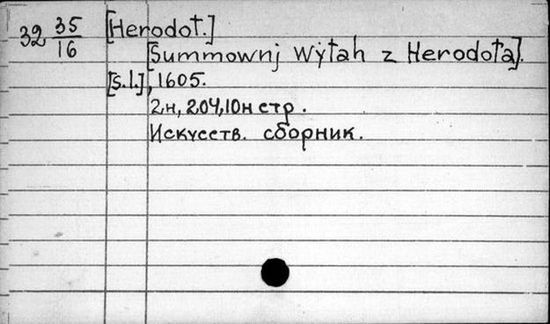 32 35/16
[Herodot.]
[Summownj Wýtah z Herodota].
[s.l.], 1605.
2н, 204, 10н стр.
Искусств. сборник.